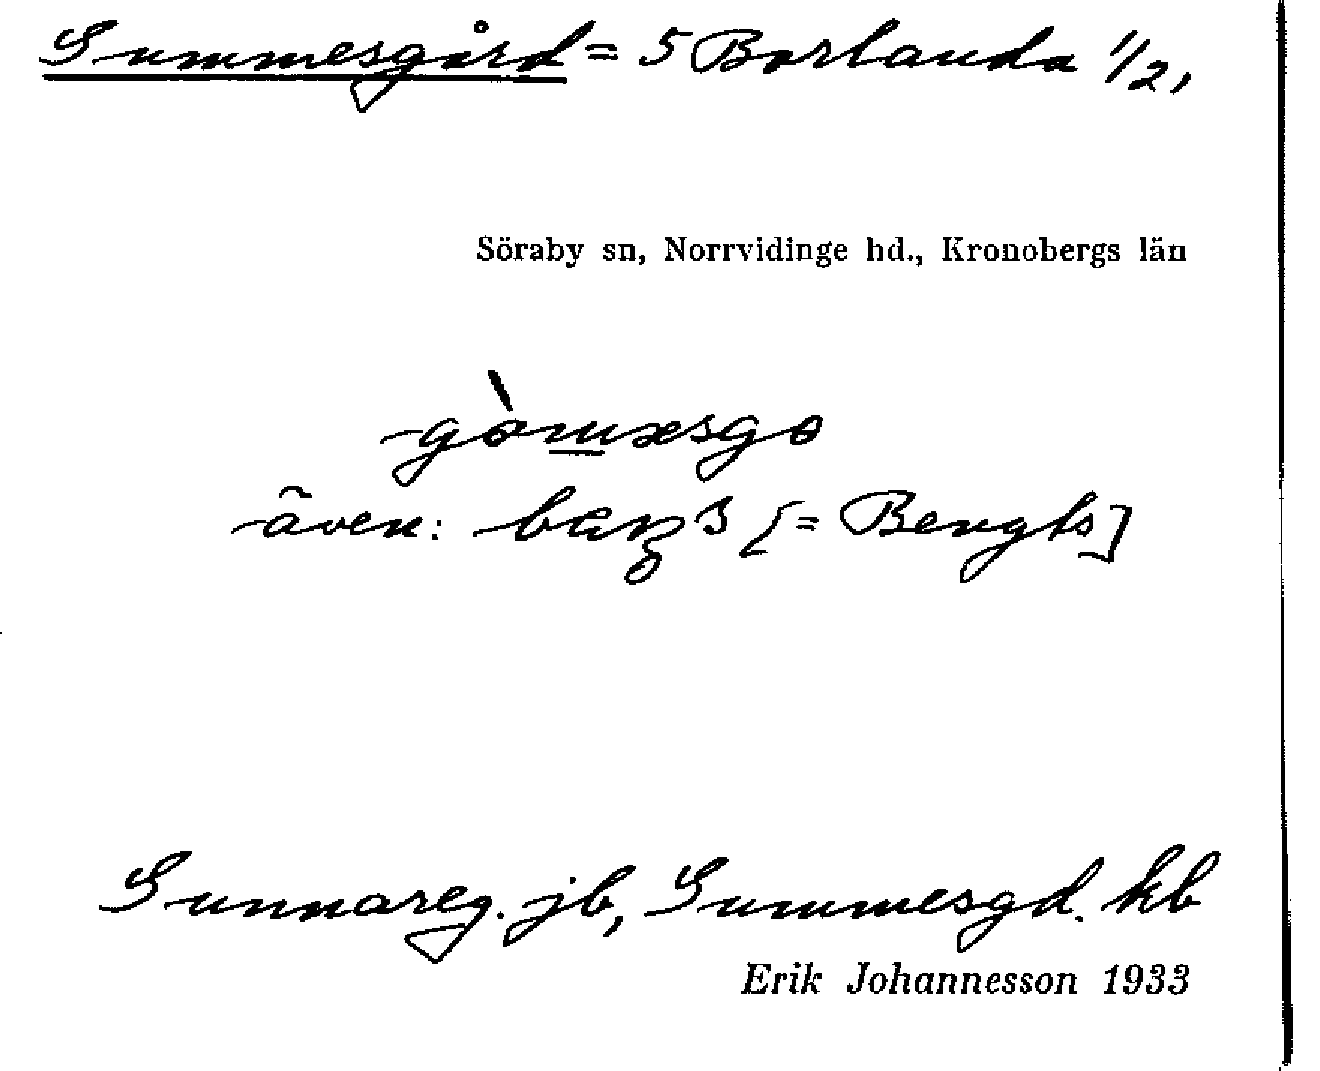 Gummesgård = 5 Borlanda 1/2,
Söraby sn, Norrvidinge hd., Kronobergs län
gòm̲æsgo
även: bæŋs [= Bengts]
Gunnareg. jb, Gummesgd. kb
Erik Johannesson 1933